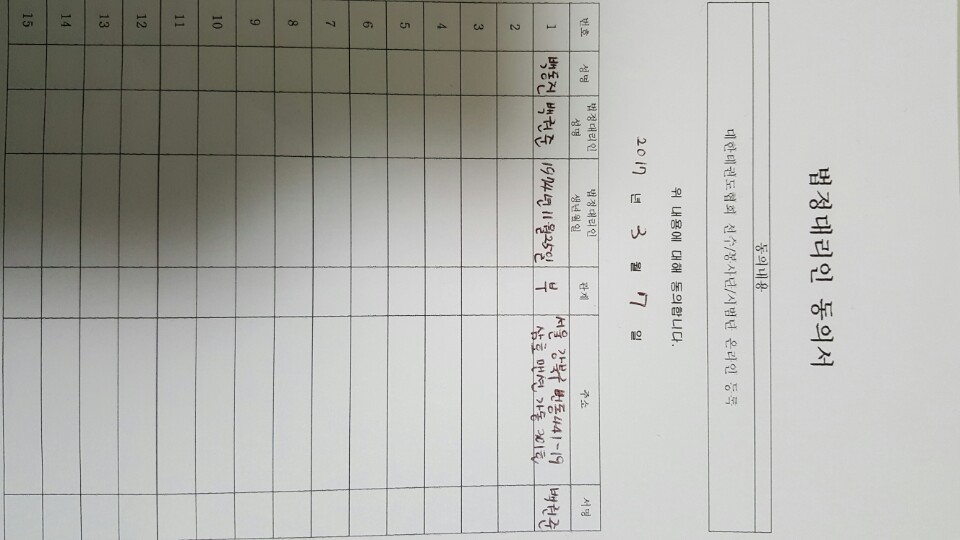 법정대리인 동의서
동의내용
대한태권도협회 선수/봉사단/시범단 온라인 등록
위 내용에 대해 동의합니다.
2017 년 3 월 7 일
번호 성명 법정대리인 성명 법정대리인 생년월일 관계 주소 서명
1 백동진 백천준 1974년 11월25일 부 서울 강북구 번동441-19
삼호 맨션 가동 201호 백천준
2
3
4
5
6
7
8
9
10
11
12
13
14
15